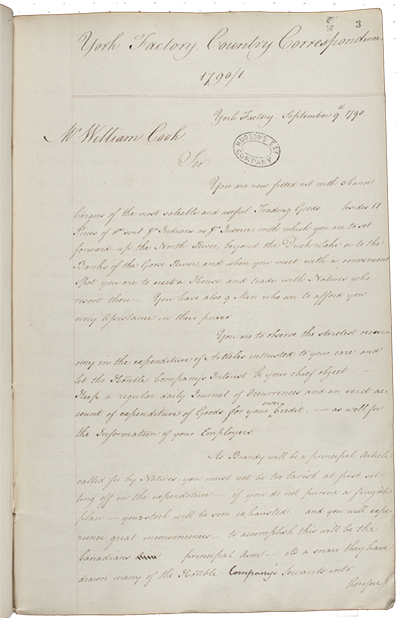 3
York Factory Country Correspondence
1790/1
York Factory September 9th 1790
HUDSON'S BAY
COMPANY
Mr William Cook
Sir
You are now fitted out with
largoe of the most saleable and useful Trading Goods 18
Pieces of sent Indians as with which you are to set
forward up the North River, beyond the Duck Lake or to the
Banks of the Goose River, and when you meet with a convenient
Spot you are to erect a House and trade with Natives who
resort there — You have also 9 Men who are to afford you
every Assistance in their power
You are to observe the strictest œcono-
my in the expenditure of Articles intrusted to your care and
let the Honble Company's Interest be your chief object —
Keep a regular daily Journal of Occurrences and an exact ac-
count of expenditure of Goods for your own Credit, — as well for
the Information of your Employers
As Brandy will be a principal Article
called for by Natives, you must not be too lavish at first set-
ting off in the expenditure if you do not pursue a frugal
plan — your stock will be soon exhausted, and you will expe-
rience great inconvenience — to accomplish this will be the
Canadians principal Aim — its a snare they have
drawn many of the Honble Company's Servants into
therefore